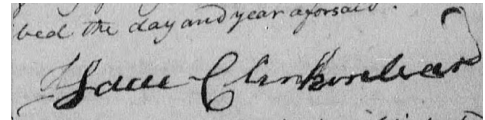 bed the day and year aforsaid.
Isaac Clinkinbeard